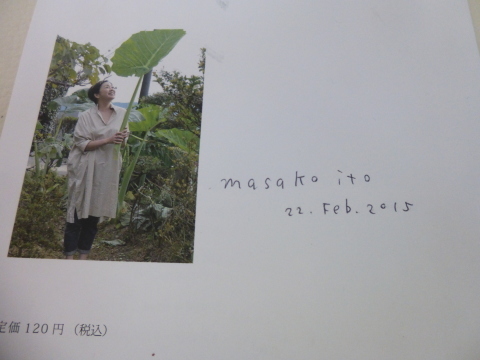 masako ito
22. Feb. 2015
定価120円（税込）